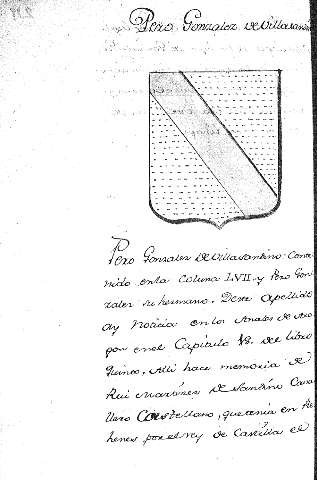 Pero Gonzalez de Villasantin
Pero Gonzalez de Villasantino Conte
nido en la Coluna LVII. y Pero Gon
zalez su hermano. Deste apellido
ay noticia en los Anales de Ara
gon en el Capitulo de el libro
quinto, Alli hace memoria de
Rui Martinez de Santino Cava
llero Castellano, que tenia en Re
henes por el rey de Castilla el